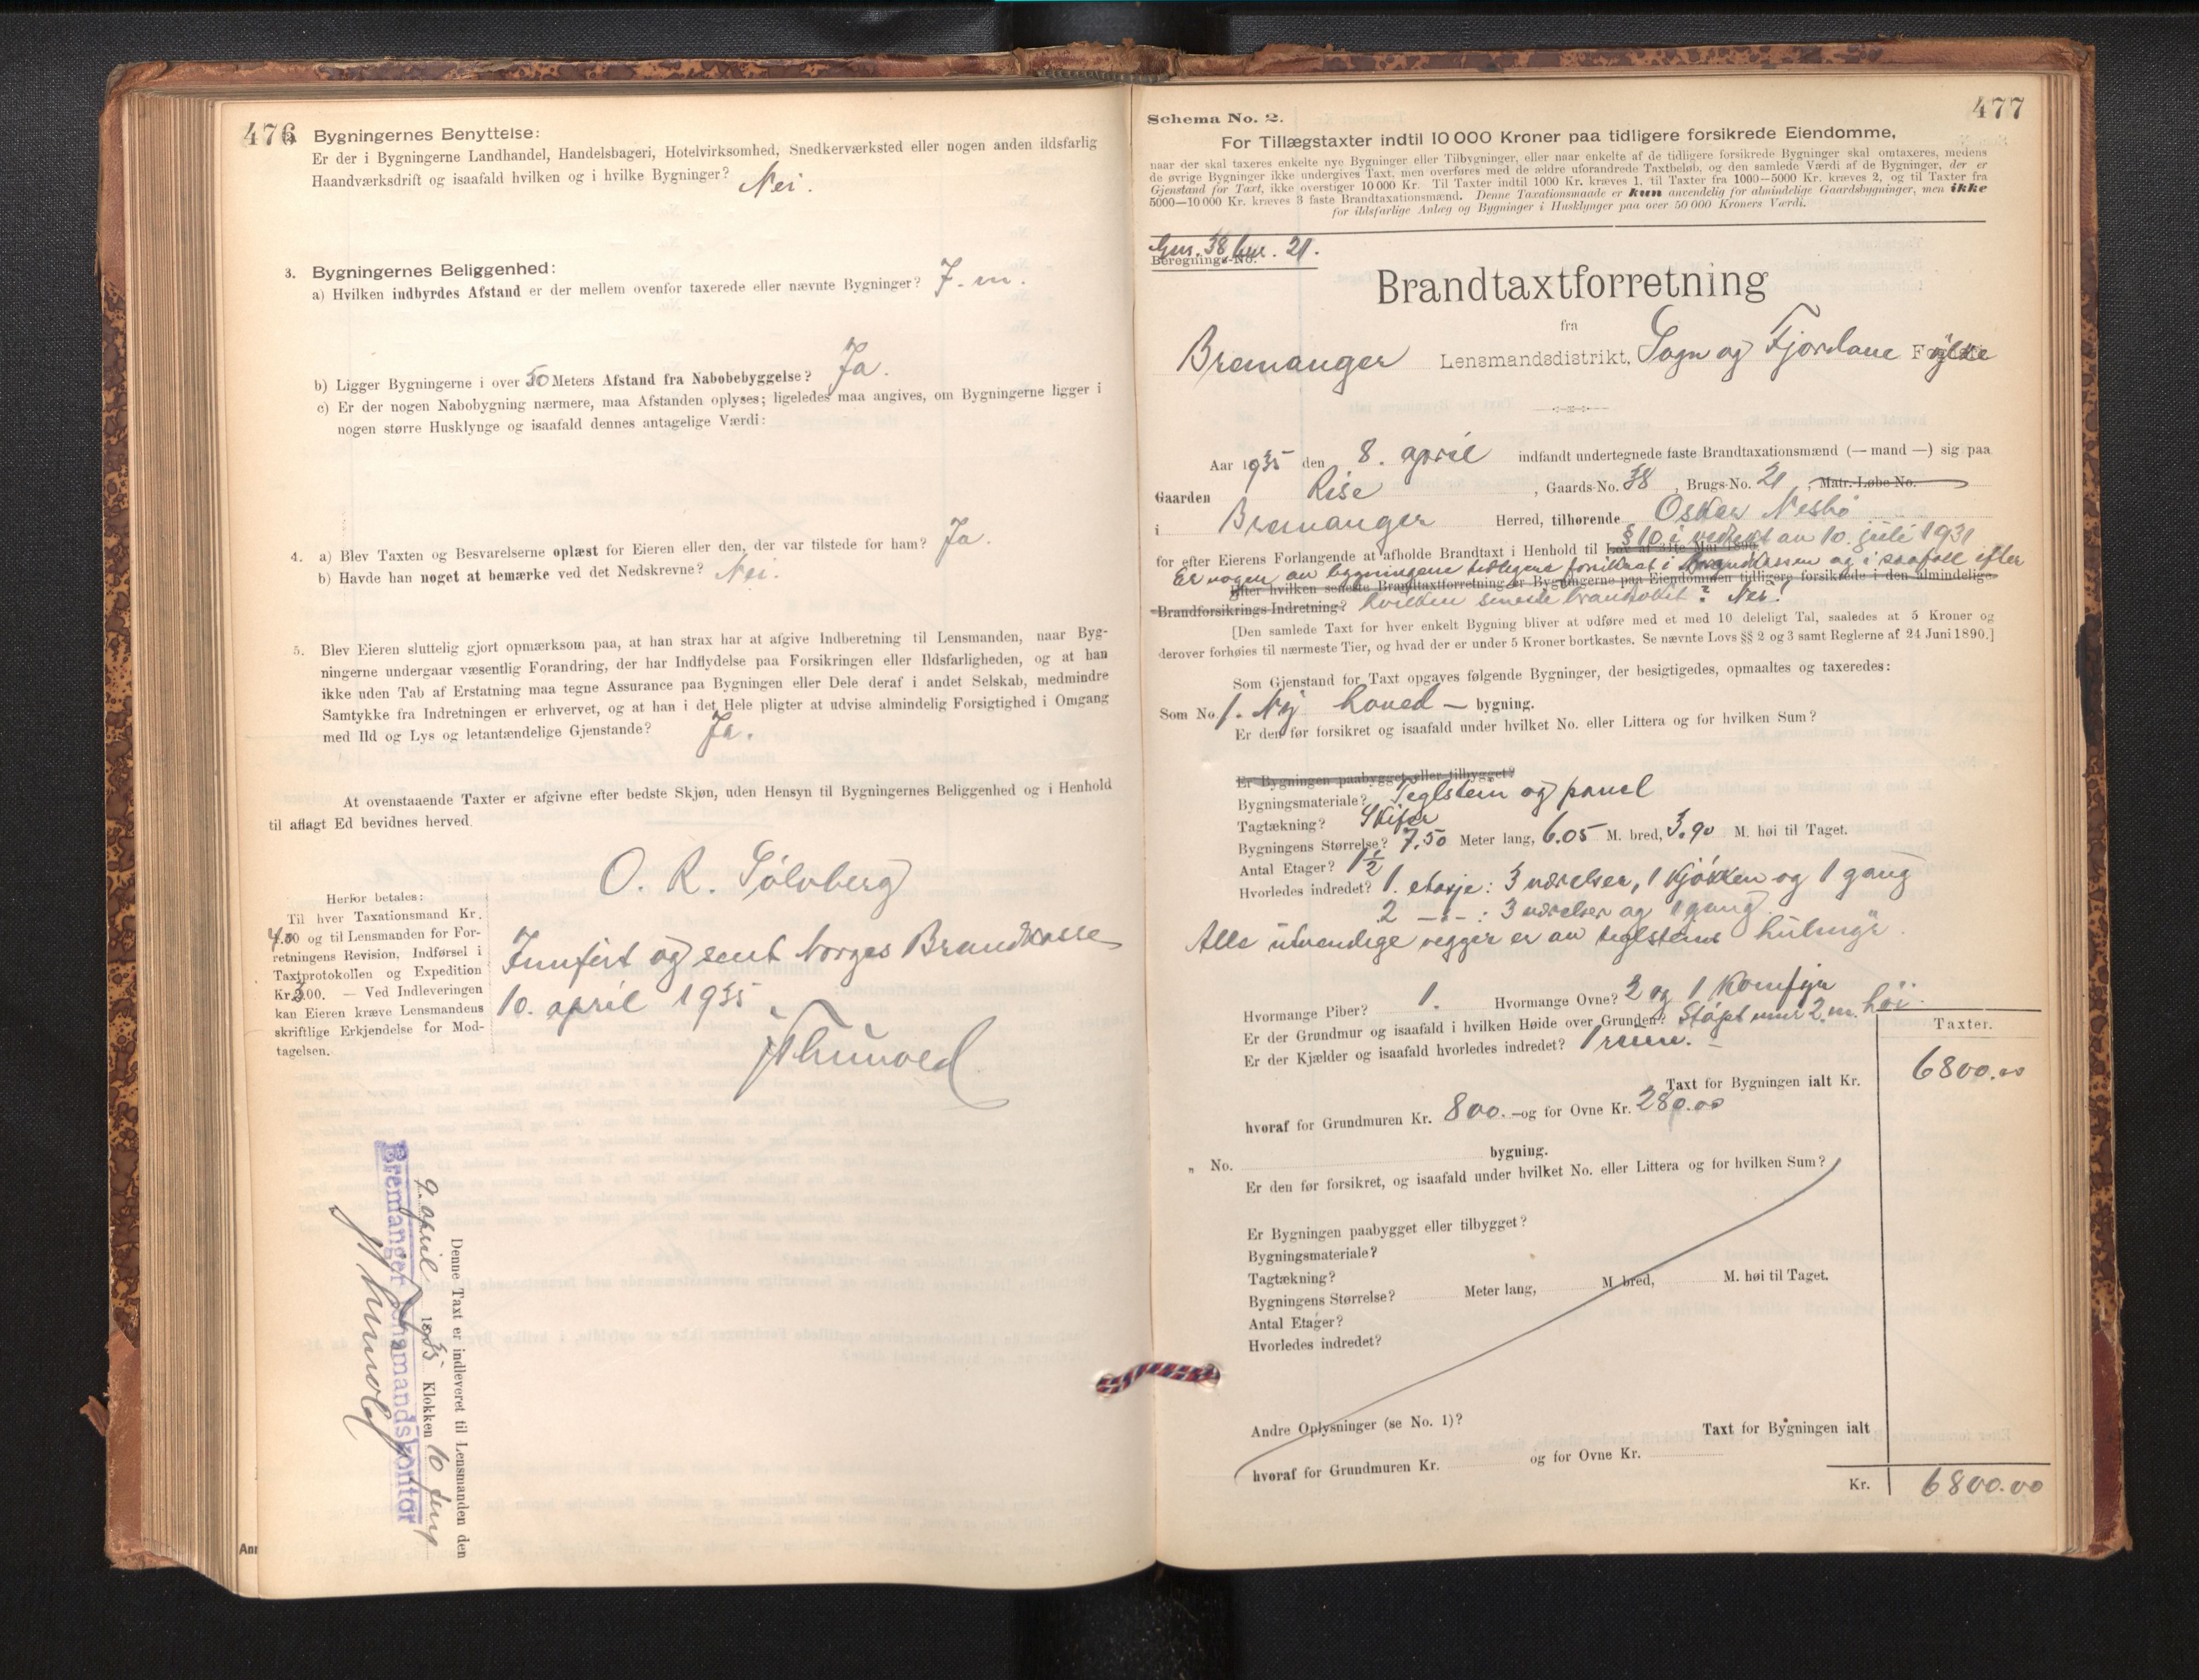 476
2. Bygningernes Benyttelse:
Er der i Bygningerne Landhandel, Handelsbageri, Hotelvirksomhed, Snedkerværksted eller nogen anden ildsfarlig
Haandværksdrift og isaafald hvilken og i hvilke Bygninger? Nei.
3. Bygningernes Beliggenhed:
a) Hvilken indbyrdes Afstand er der mellem ovenfor taxerede eller nævnte Bygninger? 7. m.
b) Ligger Bygningerne i over 50 Meters Afstand fra Nabobebyggelse? Ja.
c) Er der nogen Nabobygning nærmere, maa Afstanden oplyses; ligeledes maa angives, om Bygningerne ligger i
nogen større Husklynge og isaafald dennes antagelige Værdi:
4. a) Blev Taxten og Besvarelserne oplæst for Eieren eller den, der var tilstede for ham? Ja.
b) Havde han noget at bemærke ved det Nedskrevne? Nei.
5. Blev Eieren sluttelig gjort opmærksom paa, at han strax har at afgive Indberetning til Lensmanden, naar Byg-
ningerne undergaar væsentlig Forandring, der har Indflydelse paa Forsikringen eller Ildsfarligheden, og at han
ikke uden Tab af Erstatning maa tegne Assurance paa Bygningen eller Dele deraf i andet Selskab, medmindre
Samtykke fra Indretningen er erhvervet, og at han i det Hele pligter at udvise almindelig Forsigtighed i Omgang
med Ild og Lys og letantændelige Gjenstande? Ja.
At ovenstaaende Taxter er afgivne efter bedste Skjøn, uden Hensyn til Bygningernes Beliggenhed og i Henhold
til aflagt Ed bevidnes herved.
O. R. Sølvberg
Herfor betales:
Til hver Taxationsmand Kr.
4.00 og til Lensmanden for For-
retningens Revision, Indførsel i
Taxtprotokollen og Expedition
Kr. 3.00. — Ved Indleveringen
kan Eieren kræve Lensmandens
skriftlige Erkjendelse for Mod-
tagelsen.
Innført og sent Norges Brandkasse
10. april 1935.
Denne Taxt er indleveret til Lensmanden den
9. april 1935 Klokken 10 form
Bremanger Lensmandskontor
Anm
477
Schema No. 2.
For Tillægstaxter indtil 10 000 Kroner paa tidligere forsikrede Eiendomme,
naar der skal taxeres enkelte nye Bygninger eller Tilbygninger, eller naar enkelte af de tidligere forsikrede Bygninger skal omtaxeres, medens
de øvrige Bygninger ikke undergives Taxt, men overføres med de ældre uforandrede Taxtbeløb, og den samlede Værdi af de Bygninger, der er
Gjenstand for Taxt, ikke overstiger 10 000 Kr. Til Taxter indtil 1000 Kr. kræves 1, til Taxter fra 1000—5000 Kr. kræves 2, og til Taxter fra
5000—10 000 Kr. kræves 3 faste Brandtaxationsmænd. Denne Taxationsmaade er kun anvendelig for almindelige Gaardsbygninger, men ikke
for ildsfarlige Anlæg og Bygninger i Husklynger paa over 50 000 Kroners Værdi.
Gnr. 38 bnr. 21.
Beregnings-No.
Brandtaxtforretning
fra
Bremanger Lensmandsdistrikt, Sogn og Fjordane Fylke
Aar 1935 den 8. april indfandt undertegnede faste Brandtaxationsmænd (— mand —) sig paa
Gaarden Rise, Gaards-No. 38, Brugs-No. 21, Matr.-Løbe-No.
i Bremanger Herred, tilhørende Oskar Nesbø
§ 10 i vedtekt av 10. juli 1931
for efter Eierens Forlangende at afholde Brandtaxt i Henhold til Lov af 31te Mai 1890
Er nogen av bygningene tidligere forsikret i brandkassen og i saafall efter
Efter hvilken seneste Brandtaxtforretning er Bygningerne paa Eiendommen tidligere forsikrede i den almindelige
Brandforsikrings-Indretning? hvilken seneste brandtakst? Nei!
[Den samlede Taxt for hver enkelt Bygning bliver at udføre med et med 10 deleligt Tal, saaledes at 5 Kroner og
derover forhøies til nærmeste Tier, og hvad der er under 5 Kroner bortkastes. Se nævnte Lovs §§ 2 og 3 samt Reglerne af 24 Juni 1890.]
Som Gjenstand for Taxt opgaves følgende Bygninger, der besigtigedes, opmaaltes og taxeredes:
Som No. 1. Ny hoved — bygning.
Er den før forsikret og isaafald under hvilket No. eller Littera og for hvilken Sum?
Er Bygningen paabygget eller tilbygget?
Bygningsmateriale? Teglstein og panel
Tagtækning? Skifer
Bygningens Størrelse? 7.50 Meter lang, 6.05 M. bred, 3.90 M. høi til Taget.
Antal Etager? 1½
Hvorledes indredet? 1. etasje: 3 værelser, 1 kjøkken og 1 gang
2 —"— : 3 værelser og 1 gang.
Alle utvendige vegger er av teglsteins hulmur.
Hvormange Piber? 1. Hvormange Ovne? 2 og 1 komfyr
Er der Grundmur og isaafald i hvilken Høide over Grunden? Støpt mur 2. m. høi.
Er der Kjælder og isaafald hvorledes indredet? 1 rum.
Taxter.
Taxt for Bygningen ialt Kr. 6800.00
hvoraf for Grundmuren Kr. 800.— og for Ovne Kr. 280.00
„ No. bygning.
Er den før forsikret, og isaafald under hvilket No. eller Littera og for hvilken Sum?
Er Bygningen paabygget eller tilbygget?
Bygningsmateriale?
Tagtækning?
Bygningens Størrelse? Meter lang, M. bred, M. høi til Taget.
Antal Etager?
Hvorledes indredet?
Andre Oplysninger (se No. 1)? Taxt for Bygningen ialt
hvoraf for Grundmuren Kr. og for Ovne Kr.
Kr. 6800.00